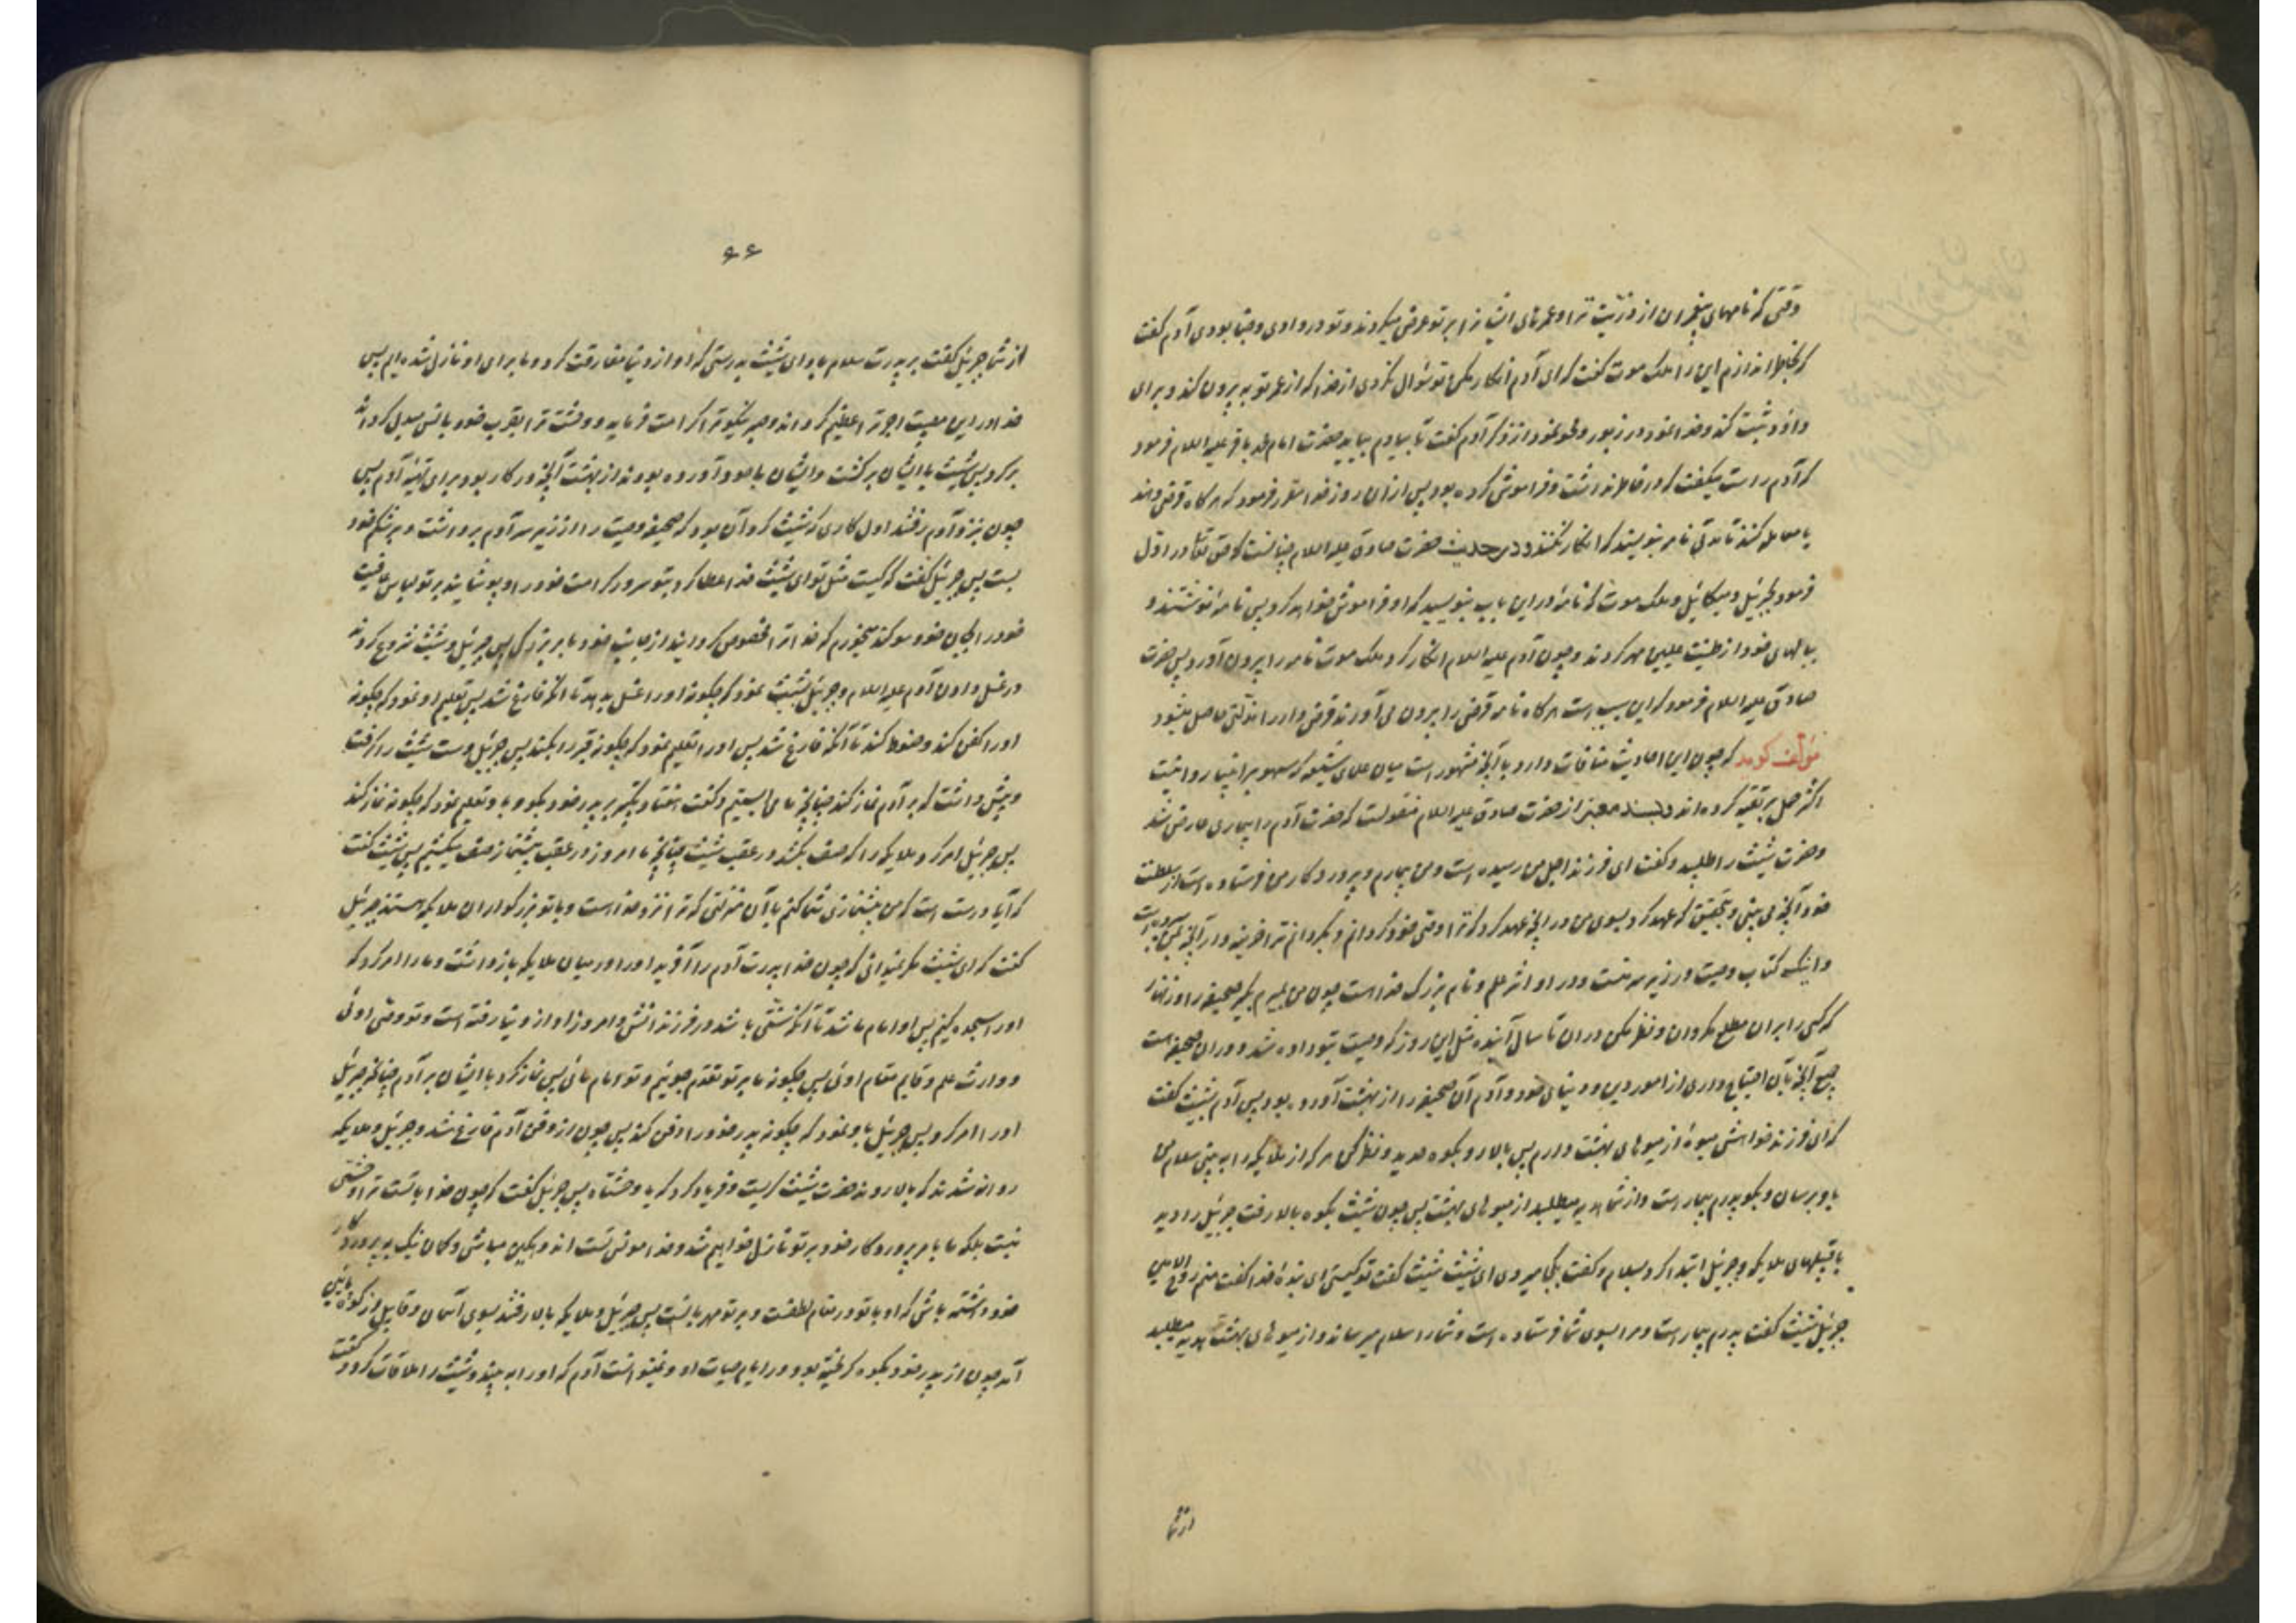 وقتی که نامهای پیغمبران از ذریّت ترا و عمرهای ایشانرا بر تو عرض میکردند و تو در وادی وحنا بودی آدم گفت
که بخاطر ندارم این را ملک موت گفت که ای آدم انکار مکن تو سؤال نکردی از خدا که از عمر تو بیرون کند و برای
داود ثبت کند و خدا نمود در زبور و محو نمود از ذکر آدم گفت تا بیادم بیاید حضرت امام محمد باقر علیه السلام فرمود
که آدم راست میگفت که در خاطر نداشت و فراموش کرده بود پس از آن روز خدا مقرر فرمود که هرگاه قرضی دهند
یا معامله کنند تا مدتی نامه بنویسند که انکار نکنند و در حدیث حضرت صادق علیه السلام چنانست که حق تعالی در اول
فرمود بجبرئیل و میکائیل و ملک موت که نامهٔ در این باب بنویسید که او فراموش خواهد کرد پس نامه نوشتند و
ببالهای خود از طینت علیین مهر کردند و چون آدم علیه السلام انکار کرد ملک موت نامه را بیرون آورد پس حضرت
صادق علیه السلام فرمود که این سبب است هرگاه نامه قرضی را بیرون می آورند قرض دار را مذلتی حاصل میشود
مؤلف گوید که چون این احادیث منافات دارد با آنچه مشهور است میان علمای شیعه که سهو بر انبیا روا نیست
اکثر حمل بر تقیه کرده اند و بسند معتبر از حضرت صادق علیه السلام منقولست که حضرت آدم را بیماری عارض شد
و حضرت شیث را طلبید و گفت ای فرزند اجل من رسیده است و من بیمارم و پروردگار من فرستاده است از سلطنت
خود آنچه می بینی و بتحقیق که عهد کرد بسوی من در آنچه عهد کرد که ترا وصی خود گردانم و بگردانم ترا خزینه دار آنچه بمن سپرده است
و اینک کتاب وصیت در زیر سر منست و در او اثر علم و نام بزرگ خدا است چون من بمیرم بگیر صحیفه را و زنهار
که کسی را بر آن مطلع مگردان و نظر مکن در آن تا سال آینده مثل این روز که وصیت بتو داده شد و در آن صحیفه است
جمیع آنچه بآن احتیاج داری از امور دین و دنیای خود و آدم آن صحیفه را از بهشت آورده بود پس آدم بشیث گفت
که ای فرزند خواهش میوهٔ از میوهای بهشت دارم پس بالا رو بکوه حدید و نظر کن هر که از ملایکه را به بینی سلام من
باو برسان و بگو پدرم بیمار است و از شما هدیه میطلبد از میوهای بهشت پس چون شیث بکوه بالا رفت جبرئیل را دید
با قبیلهای ملایکه و جبرئیل ابتدا کرد بسلام و گفت بکجا میروی ای شیث شیث گفت تو کیستی ای بندهٔ خدا گفت منم روح الامین
جبرئیل شیث گفت پدرم بیمار است و مرا بسوی شما فرستاده است و شما را سلام میرساند و از میوهای بهشت هدیه میطلبد
از شما
۶۶
از شما جبرئیل گفت بر پدرت سلام باد ای شیث بدرستی که او از دنیا مفارقت کرد و ما برای او نازل شده ایم پس
خدا در این مصیبت اجر ترا عظیم گرداند و صبر نیکو ترا کرامت فرماید و وحشت ترا بقرب خود بانس مبدل گرداند
برگرد پس شیث با ایشان برگشت و ایشان با خود آورده بودند از بهشت آنچه در کار بود برای تهیهٔ آدم پس
چون بنزد آدم رفتند اول کاری که شیث کرد آن بود که صحیفه وصیت را از زیر سر آدم برداشت و بر شکم خود
بست پس جبرئیل گفت که کیست مثل تو ای شیث خدا عطا کرد بتو سرور کرامت خود را و پوشانید بر تو لباس عافیت
خود را بجان خود سوگند میخورم که خدا ترا مخصوص گردانید از جانب خود بامر بزرگی پس جبرئیل و شیث شروع کردند
در غسل دادن آدم علیه السلام و جبرئیل بشیث نمود که چگونه او را غسل بدهد تا آنکه فارغ شد پس تعلیم او نمود که چگونه
او را کفن کند و حنوط کند تا آنکه فارغ شد پس او را تعلیم نمود که چگونه قبر را بکند پس جبرئیل دست شیث را گرفت
و پیش داشت که بر آدم نماز کند چنانچه ما می ایستیم و گفت هفتاد تکبیر بر پدر خود بگو و باو تعلیم نمود که چگونه نماز کند
پس جبرئیل امر کرد ملایکه را که صف بکشند در عقب شیث چنانچه ما امروز در عقب پیشنماز صف میکشیم پس شیث گفت
که آیا درست است که من پیشنمازی شما کنم با آن منزلتی که ترا نزد خدا است و با تو بزرگواران ملایکه هستند جبرئیل
گفت که ای شیث مگر نمیدانی که چون خدا پدرت آدم را آفرید او را در میان ملایکه بازداشت و ما را امر کرد که
او را سجده کنیم پس او امام ما شد تا آنکه سنتی باشد در فرزندانش و امروز او از دنیا رفته است و تو وصی اوئی
و وارث علم و قایم مقام اوئی پس چگونه ما بر تو تقدم جوئیم و تو امام مائی پس نماز کرد با ایشان بر آدم چنانچه جبرئیل
او را امر کرد پس جبرئیل باو نمود که چگونه پدر خود را دفن کند پس چون از دفن آدم فارغ شد و جبرئیل و ملایکه
روانه شدند که بالا روند حضرت شیث گریست و فریاد کرد که یا وحشتاه پس جبرئیل گفت که چون خدا با تست ترا وحشتی
نیست بلکه ما بامر پروردگار خود بر تو نازل خواهیم شد و خدا مونس تست اندوهگین مباش و گمان نیک به پروردگار
خود داشته باش که او با تو در مقام لطفست و بر تو مهربانست پس جبرئیل و ملایکه بالا رفتند بسوی آسمان و قابیل از کوه پائین
آمد چون از پدر خود بکوه گریخته بود در ایام حیات او و نمیتوانست آدم که او را به بیند و شیث را ملاقات کرد و گفت